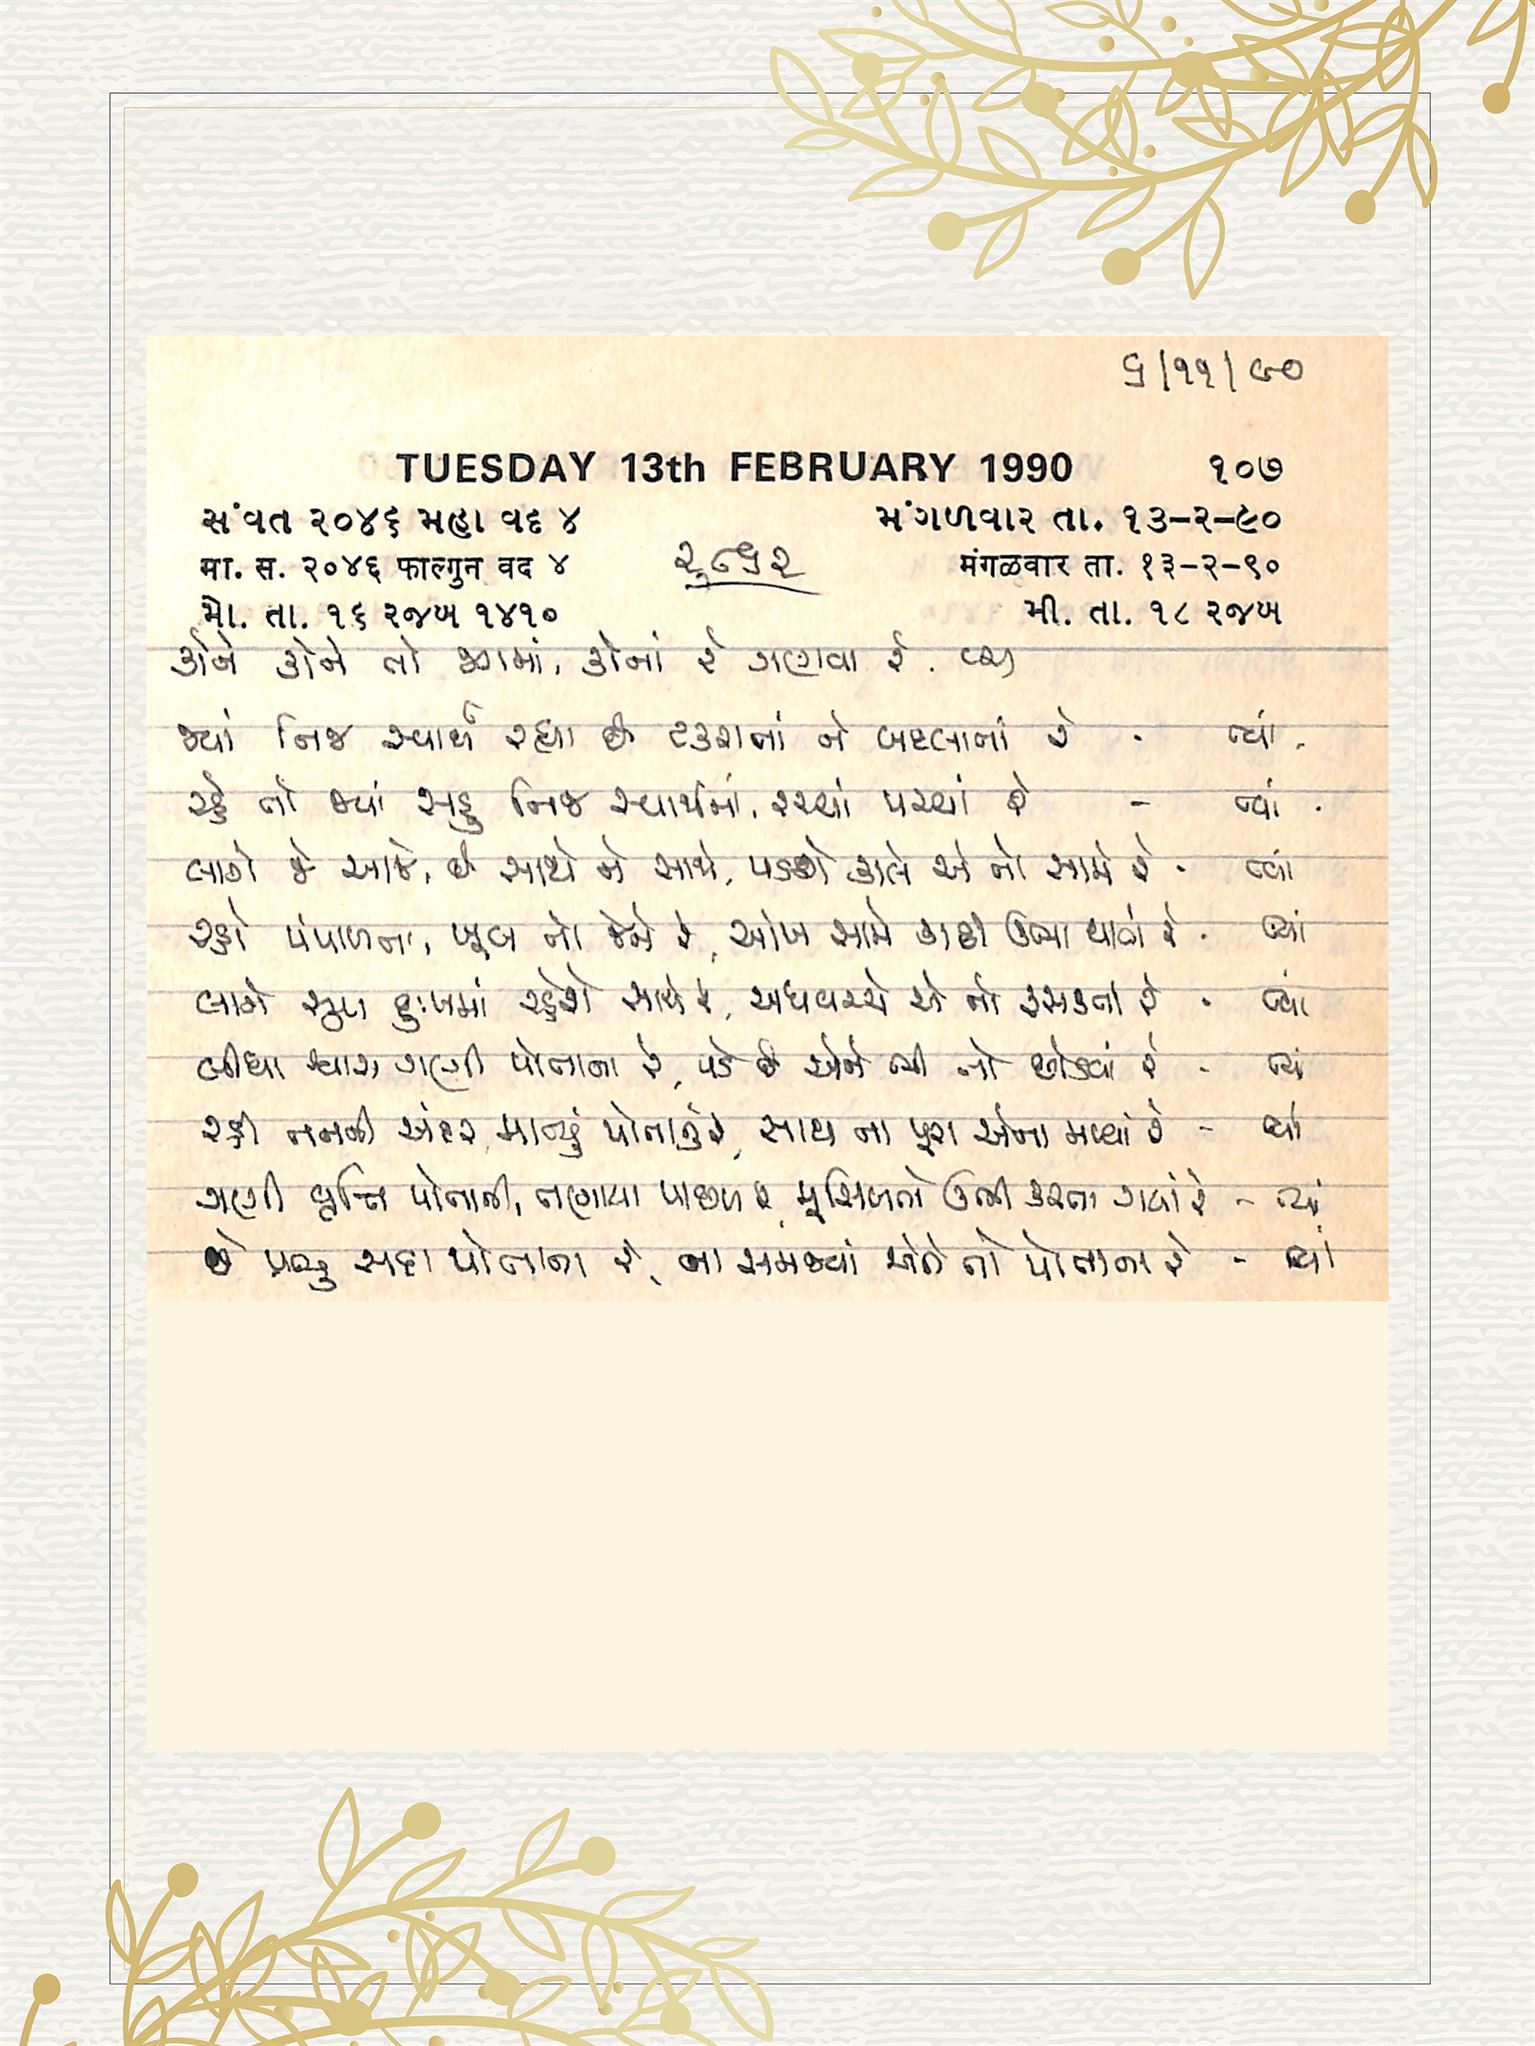 ૬/૧૧/૯૦
TUESDAY 13th FEBRUARY 1990 ૧૦૭
સંવત ૨૦૪૬ મહા વદ ૪ મંગળવાર તા. ૧૩-૨-૯૦
मा. स. २०४६ फाल्गुन वद ४ मंगळवार ता. १३-२-९०
મૌ. તા. ૧૬ રજબ ૧૪૧૦ મી. તા. ૧૮ રજબ
કોને કોને તો જગમાં, કોનાં રે ગણવા રે.
જ્યાં નિજ સ્વાર્થ રહ્યા છે ટકરાતાં ને બદલાતાં રે - ત્યાં.
રહે તો જ્યાં સહુ નિજ સ્વાર્થમાં, રચ્યાં પચ્યાં રે - ત્યાં.
લાગે જે આજે, છે સાથે ને સાથે, પડશે કાલે એ તો સામે રે - ત્યાં
રહ્યો પંપાળતા, ખૂબ તો જેને રે, આંખ સામે કાઢી ઊભા થાતે રે - ત્યાં
લાગે સુખ દુઃખમાં રહેશે સાથે રે, અધવચ્ચે એ તો સરકતા રે - ત્યાં
લીધા શ્વાસ ગણી પોતાના રે, પડે છે એને ભી તો છોડવાં રે - ત્યાં
રહી તનની અંદર માન્યું પોતાનું રે, સાથ ના પૂરા એના મળ્યાં રે - ત્યાં
ગણી વૃત્તિ પોતાની, તણાયા પાછળ રે, મુસીબતો ઊભી કરતા ગયાં રે - ત્યાં
છે પ્રભુ સદા પોતાના રે, ના સમજ્યાં એને તો પોતાના રે - ત્યાં